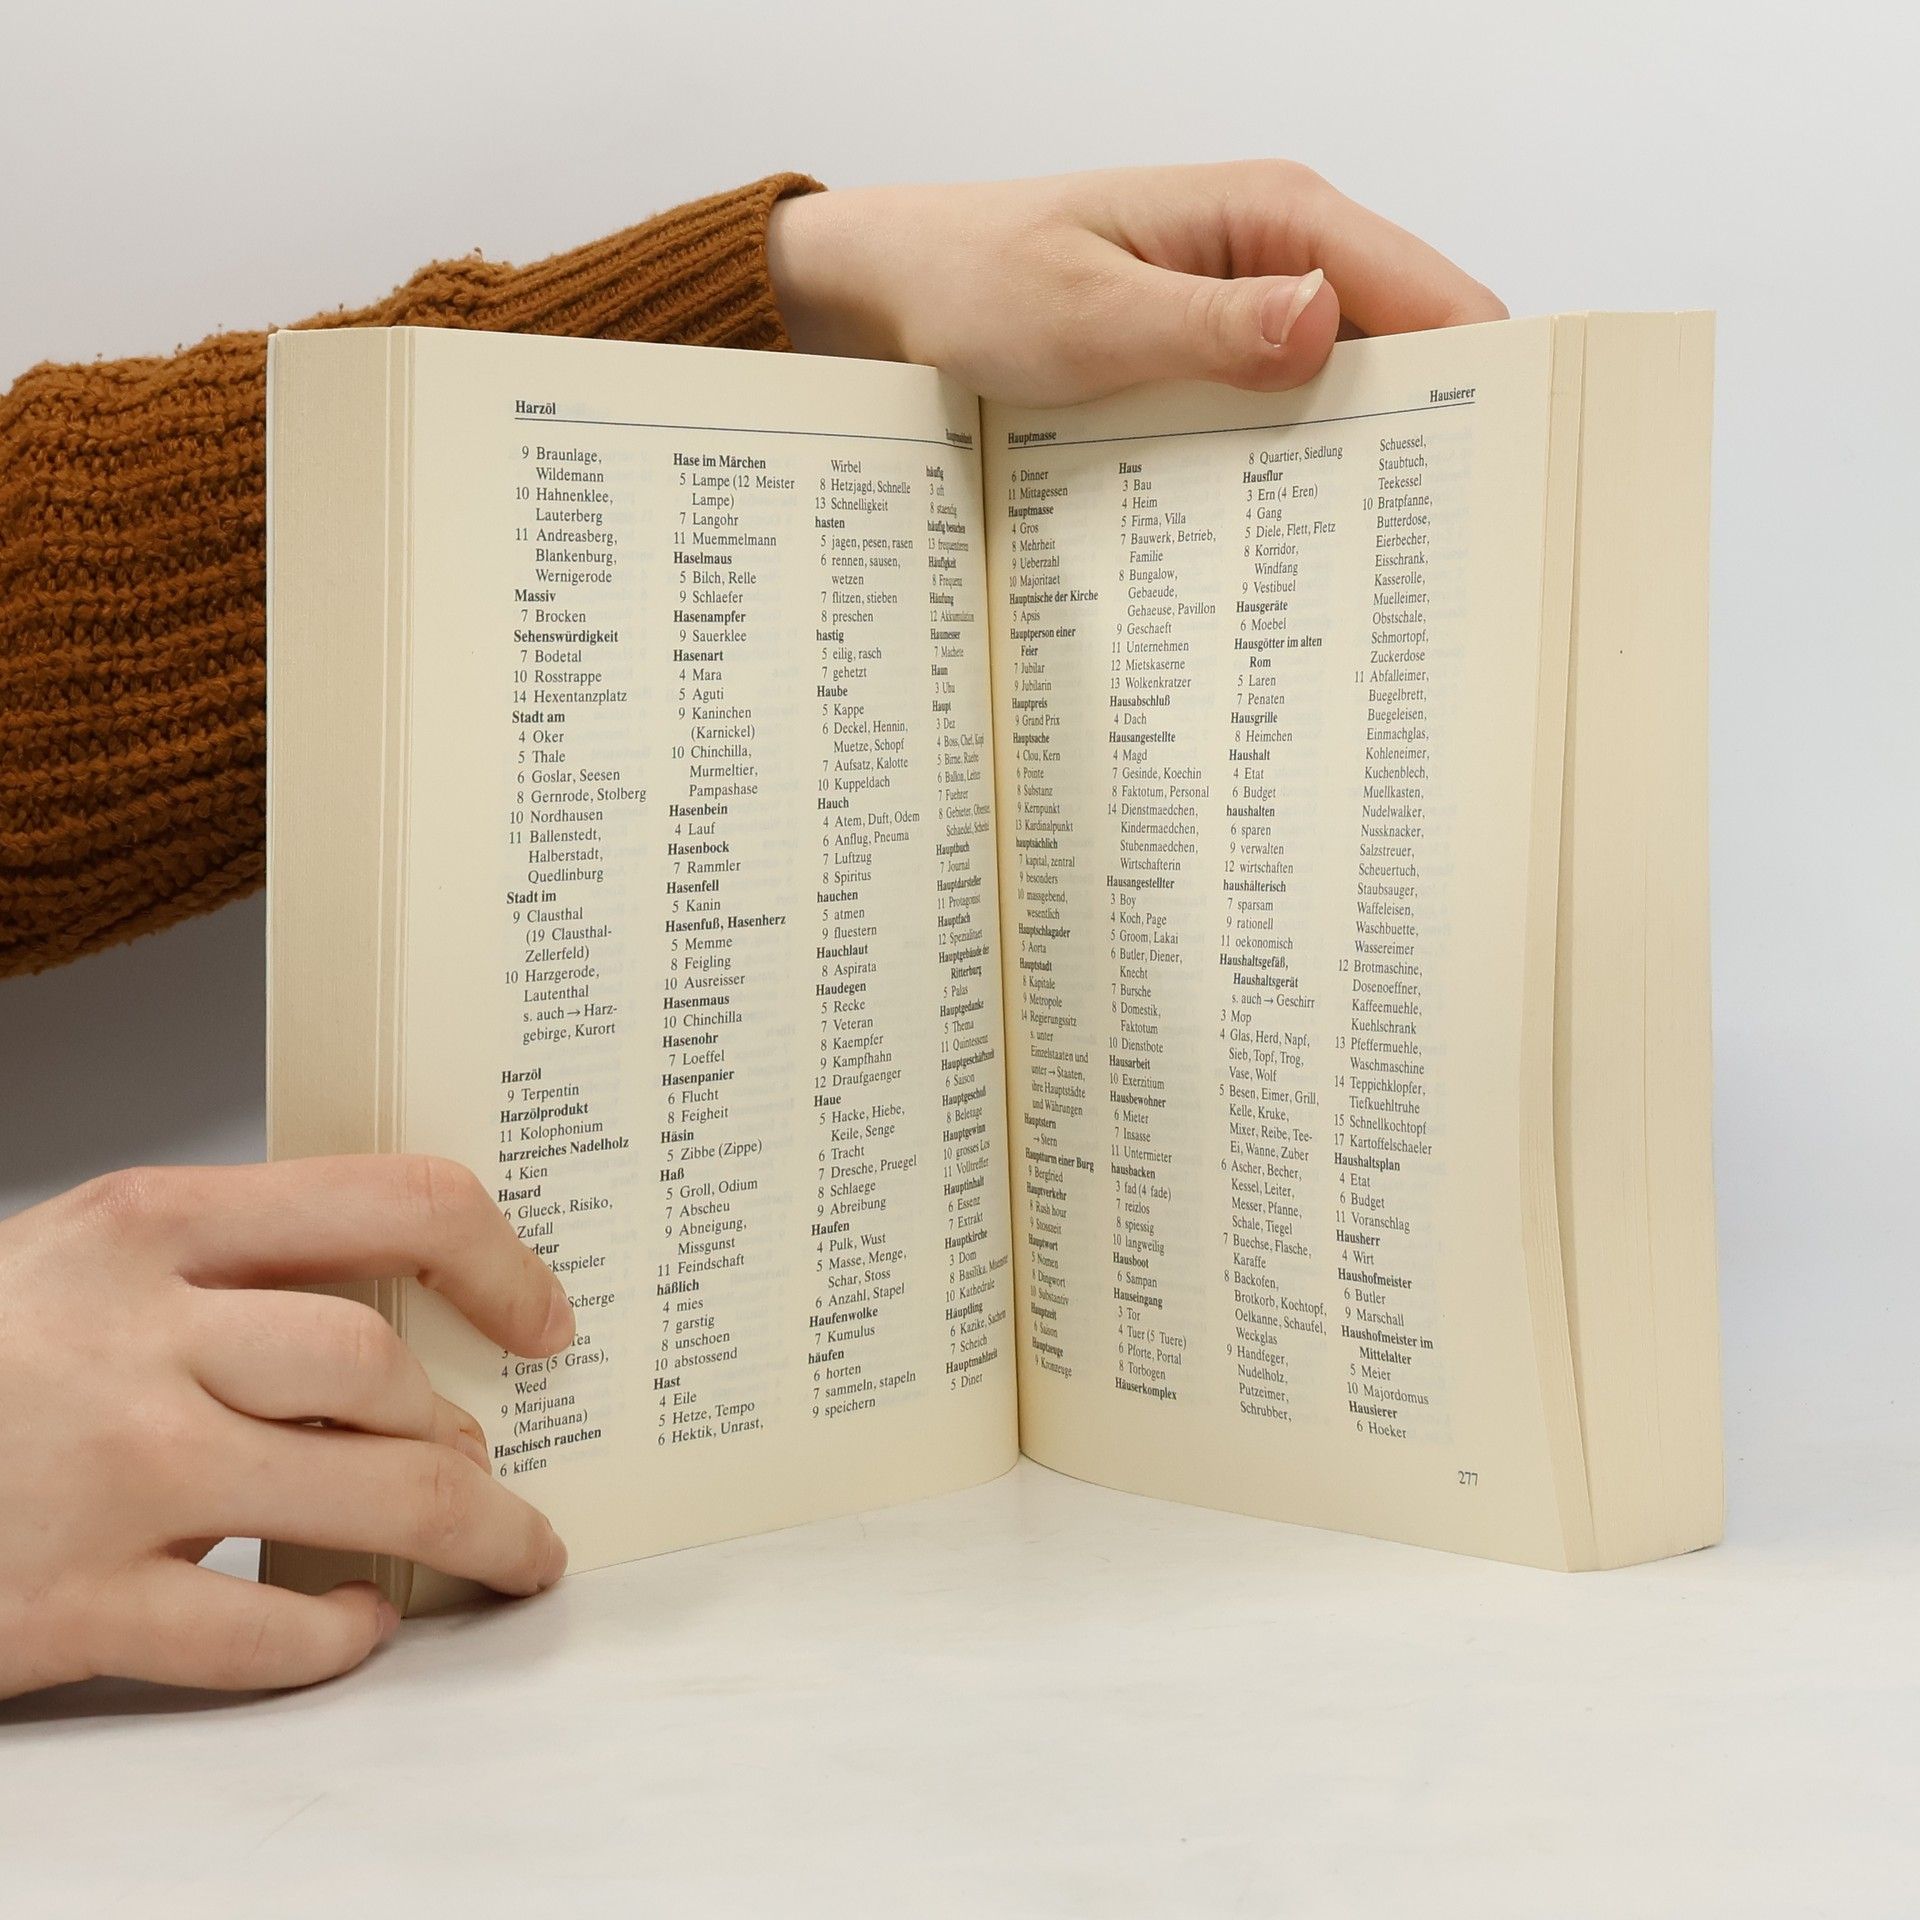 Harzöl
9 Braunlage,
Wildemann
10 Hahnenklee,
Lauterberg
11 Andreasberg,
Blankenburg,
Wernigerode
Massiv
7 Brocken
Sehenswürdigkeit
7 Bodetal
10 Rosstrappe
14 Hexentanzplatz
Stadt am
4 Oker
5 Thale
6 Goslar, Seesen
8 Gernrode, Stolberg
10 Nordhausen
11 Ballenstedt,
Halberstadt,
Quedlinburg
Stadt im
9 Clausthal
(19 Clausthal-
Zellerfeld)
10 Harzgerode,
Lautenthal
s. auch → Harz-
gebirge, Kurort
Harzöl
9 Terpentin
Harzölprodukt
11 Kolophonium
harzreiches Nadelholz
4 Kien
Hasard
6 Glueck, Risiko,
Zufall
Scherge
4 Gras (5 Grass),
Weed
9 Marijuana
(Marihuana)
Haschisch rauchen
6 kiffen
Hase im Märchen
5 Lampe (12 Meister
Lampe)
7 Langohr
11 Muemmelmann
Haselmaus
5 Bilch, Relle
9 Schlaefer
Hasenampfer
9 Sauerklee
Hasenart
4 Mara
5 Aguti
9 Kaninchen
(Karnickel)
10 Chinchilla,
Murmeltier,
Pampashase
Hasenbein
4 Lauf
Hasenbock
7 Rammler
Hasenfell
5 Kanin
Hasenfuß, Hasenherz
5 Memme
8 Feigling
10 Ausreisser
Hasenmaus
10 Chinchilla
Hasenohr
7 Loeffel
Hasenpanier
6 Flucht
8 Feigheit
Häsin
5 Zibbe (Zippe)
Haß
5 Groll, Odium
7 Abscheu
9 Abneigung,
Missgunst
11 Feindschaft
häßlich
4 mies
7 garstig
8 unschoen
10 abstossend
Hast
4 Eile
5 Hetze, Tempo
6 Hektik, Unrast,
Wirbel
8 Hetzjagd, Schnelle
13 Schnelligkeit
hasten
5 jagen, pesen, rasen
6 rennen, sausen,
wetzen
7 flitzen, stieben
8 preschen
hastig
5 eilig, rasch
7 gehetzt
Haube
5 Kappe
6 Deckel, Hennin,
Muetze, Schopf
7 Aufsatz, Kalotte
10 Kuppeldach
Hauch
4 Atem, Duft, Odem
6 Anflug, Pneuma
7 Luftzug
8 Spiritus
hauchen
5 atmen
9 fluestern
Hauchlaut
8 Aspirata
Haudegen
5 Recke
7 Veteran
8 Kaempfer
9 Kampfhahn
12 Draufgaenger
Haue
5 Hacke, Hiebe,
Keile, Senge
6 Tracht
7 Dresche, Pruegel
8 Schlaege
9 Abreibung
Haufen
4 Pulk, Wust
5 Masse, Menge,
Schar, Stoss
6 Anzahl, Stapel
Haufenwolke
7 Kumulus
häufen
6 horten
7 sammeln, stapeln
9 speichern
häufig
3 oft
8 staendig
häufig besuchen
13 frequentieren
Häufigkeit
8 Frequenz
Häufung
12 Akkumulation
Haumesser
7 Machete
Haun
3 Uhu
Haupt
3 Dez
4 Boss, Chef, Kopf
5 Birne, Ruebe
6 Ballon, Leiter
7 Fuehrer
8 Gebieter,
Schaedel,
Hauptbuch
7 Journal
Hauptdarsteller
11 Protagonist
Hauptfach
12 Spezialitaet
Hauptgebäude der
Ritterburg
5 Palas
Hauptgedanke
5 Thema
11 Quintessenz
Hauptgeschäftszeit
6 Saison
Hauptgeschoß
8 Beletage
Hauptgewinn
10 grosses Los
11 Volltreffer
Hauptinhalt
6 Essenz
7 Extrakt
Hauptkirche
3 Dom
8 Basilika, Muenster
10 Kathedrale
Häuptling
6 Kazike, Sachem
7 Scheich
Hauptmahlzeit
5 Diner
Hauptmasse
Hausierer
6 Dinner
11 Mittagessen
Hauptmasse
4 Gros
8 Mehrheit
9 Ueberzahl
10 Majoritaet
Hauptnische der Kirche
5 Apsis
Hauptperson einer
Feier
7 Jubilar
9 Jubilarin
Hauptpreis
9 Grand Prix
Hauptsache
4 Clou, Kern
6 Pointe
8 Substanz
9 Kernpunkt
13 Kardinalpunkt
hauptsächlich
7 kapital, zentral
9 besonders
10 massgebend,
wesentlich
Hauptschlagader
5 Aorta
Hauptstadt
8 Kapitale
9 Metropole
14 Regierungssitz
s. unter
Einzelstaaten und
unter → Staaten,
ihre Hauptstädte
und Währungen
Hauptstern
→ Stern
Hauptturm einer Burg
9 Bergfried
Hauptverkehr
8 Rush hour
9 Stosszeit
Hauptwort
5 Nomen
8 Dingwort
10 Substantiv
Hauptzeit
6 Saison
Hauptzeuge
9 Kronzeuge
Haus
3 Bau
4 Heim
5 Firma, Villa
7 Bauwerk, Betrieb,
Familie
8 Bungalow,
Gebaeude,
Gehaeuse, Pavillon
9 Geschaeft
11 Unternehmen
12 Mietskaserne
13 Wolkenkratzer
Hausabschluß
4 Dach
Hausangestellte
4 Magd
7 Gesinde, Koechin
8 Faktotum, Personal
14 Dienstmaedchen,
Kindermaedchen,
Stubenmaedchen,
Wirtschafterin
Hausangestellter
3 Boy
4 Koch, Page
5 Groom, Lakai
6 Butler, Diener,
Knecht
7 Bursche
8 Domestik,
Faktotum
10 Dienstbote
Hausarbeit
10 Exerzitium
Hausbewohner
6 Mieter
7 Insasse
11 Untermieter
hausbacken
3 fad (4 fade)
7 reizlos
8 spiessig
10 langweilig
Hausboot
6 Sampan
Hauseingang
3 Tor
4 Tuer (5 Tuere)
6 Pforte, Portal
8 Torbogen
Häuserkomplex
8 Quartier, Siedlung
Hausflur
3 Ern (4 Eren)
4 Gang
5 Diele, Flett, Fletz
8 Korridor,
Windfang
9 Vestibuel
Hausgeräte
6 Moebel
Hausgötter im alten
Rom
5 Laren
7 Penaten
Hausgrille
8 Heimchen
Haushalt
4 Etat
6 Budget
haushalten
6 sparen
9 verwalten
12 wirtschaften
haushälterisch
7 sparsam
9 rationell
11 oekonomisch
Haushaltsgefäß,
Haushaltsgerät
s. auch → Geschirr
3 Mop
4 Glas, Herd, Napf,
Sieb, Topf, Trog,
Vase, Wolf
5 Besen, Eimer, Grill,
Kelle, Kruke,
Mixer, Reibe, Tee-
Ei, Wanne, Zuber
6 Ascher, Becher,
Kessel, Leiter,
Messer, Pfanne,
Schale, Tiegel
7 Buechse, Flasche,
Karaffe
8 Backofen,
Brotkorb, Kochtopf,
Oelkanne, Schaufel,
Weckglas
9 Handfeger,
Nudelholz,
Putzeimer,
Schrubber,
Schuessel,
Staubtuch,
Teekessel
10 Bratpfanne,
Butterdose,
Eierbecher,
Eisschrank,
Kasserolle,
Muelleimer,
Obstschale,
Schmortopf,
Zuckerdose
11 Abfalleimer,
Buegelbrett,
Buegeleisen,
Einmachglas,
Kohleneimer,
Kuchenblech,
Muellkasten,
Nudelwalker,
Nussknacker,
Salzstreuer,
Scheuertuch,
Staubsauger,
Waffeleisen,
Waschbuette,
Wassereimer
12 Brotmaschine,
Dosenoeffner,
Kaffeemuehle,
Kuehlschrank
13 Pfeffermuehle,
Waschmaschine
14 Teppichklopfer,
Tiefkuehltruhe
15 Schnellkochtopf
17 Kartoffelschaeler
Haushaltsplan
4 Etat
6 Budget
11 Voranschlag
Hausherr
4 Wirt
Haushofmeister
6 Butler
9 Marschall
Haushofmeister im
Mittelalter
5 Meier
10 Majordomus
Hausierer
6 Hoeker
277